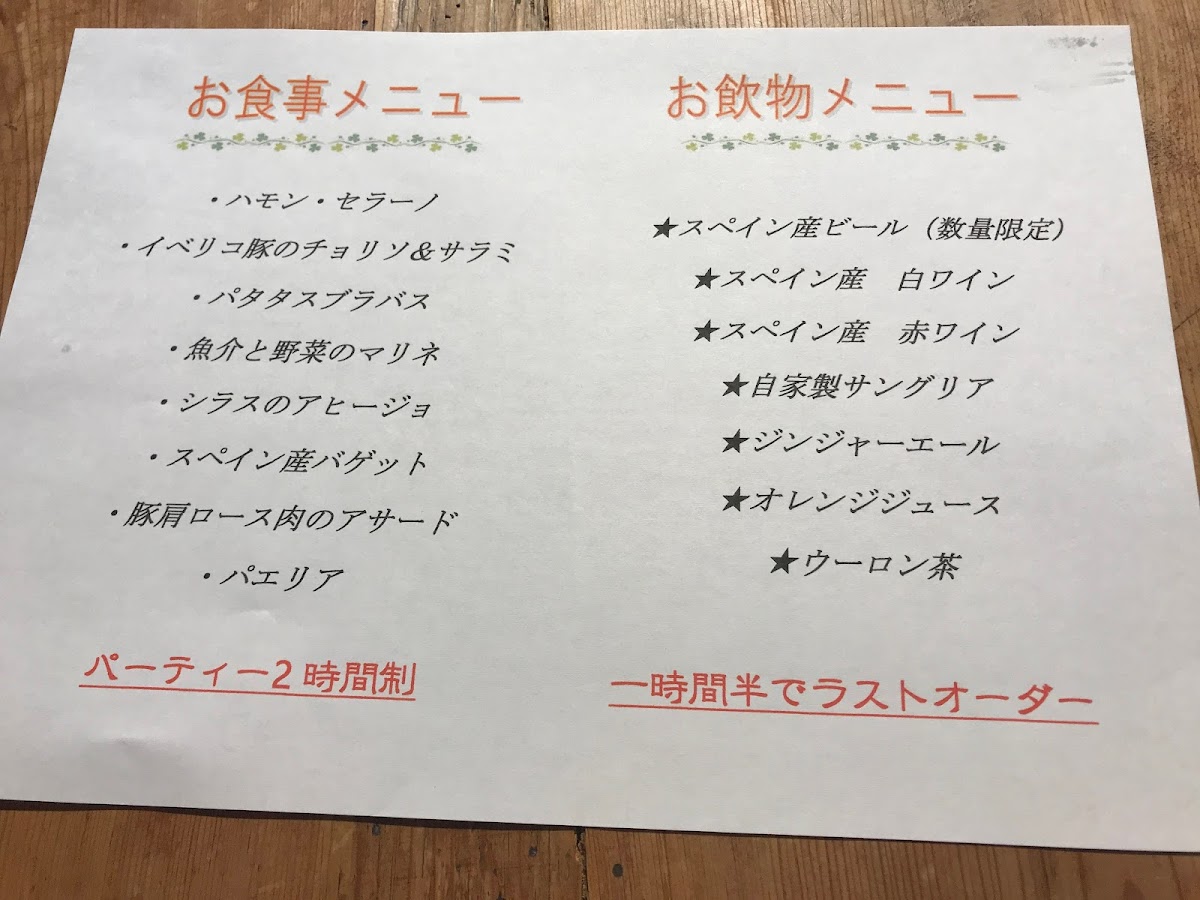 お食事メニュー
・ハモン・セラーノ
・イベリコ豚のチョリソ&サラミ
・パタタスブラバス
・魚介と野菜のマリネ
・シラスのアヒージョ
・スペイン産バゲット
・豚肩ロース肉のアサード
・パエリア
パーティー2時間制
お飲物メニュー
★スペイン産ビール（数量限定）
★スペイン産　白ワイン
★スペイン産　赤ワイン
★自家製サングリア
★ジンジャーエール
★オレンジジュース
★ウーロン茶
一時間半でラストオーダー